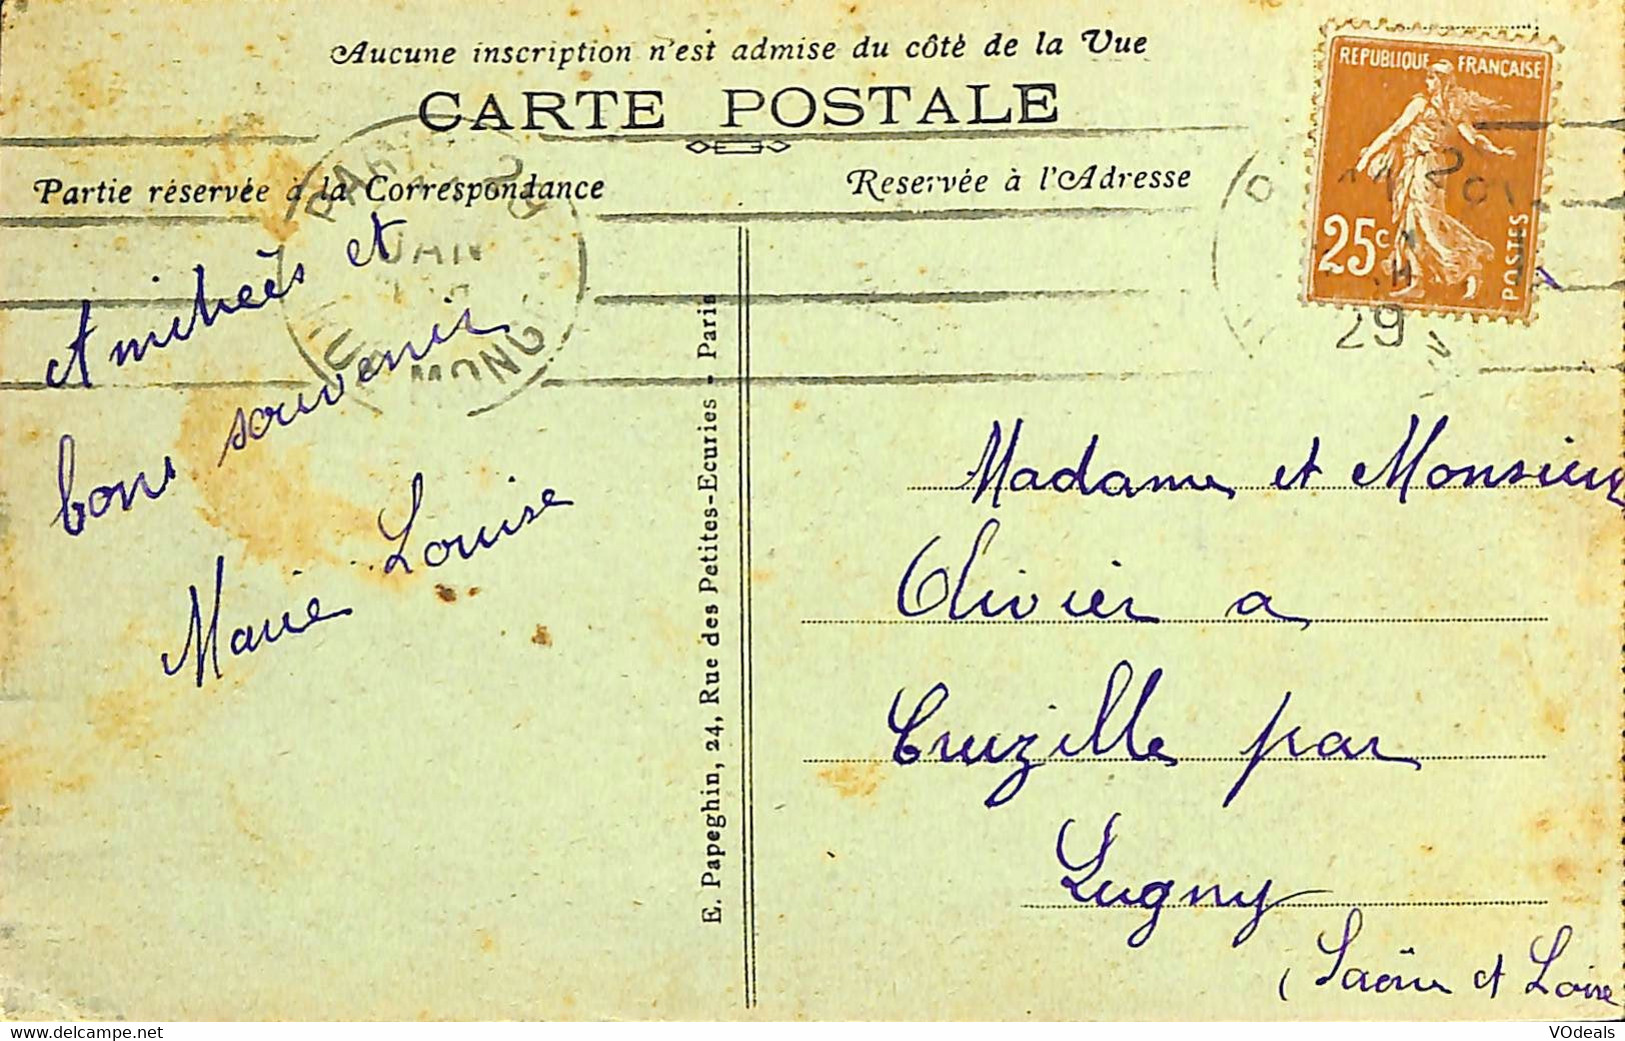 Aucune inscription n'est admise du côté de la Vue
CARTE POSTALE
Partie réservée à la Correspondance
Reservée à l'Adresse
REPUBLIQUE FRANÇAISE
25c
POSTES
PARIS
JAN
29
Amitiées et
bons souvenir
Marie Louise
E. Papeghin, 24, Rue des Petites-Ecuries - Paris
Madame et Monsieur
Olivier a
Cruzille par
Lugny
(Saône et Loire
delcampe.net
VOdeals